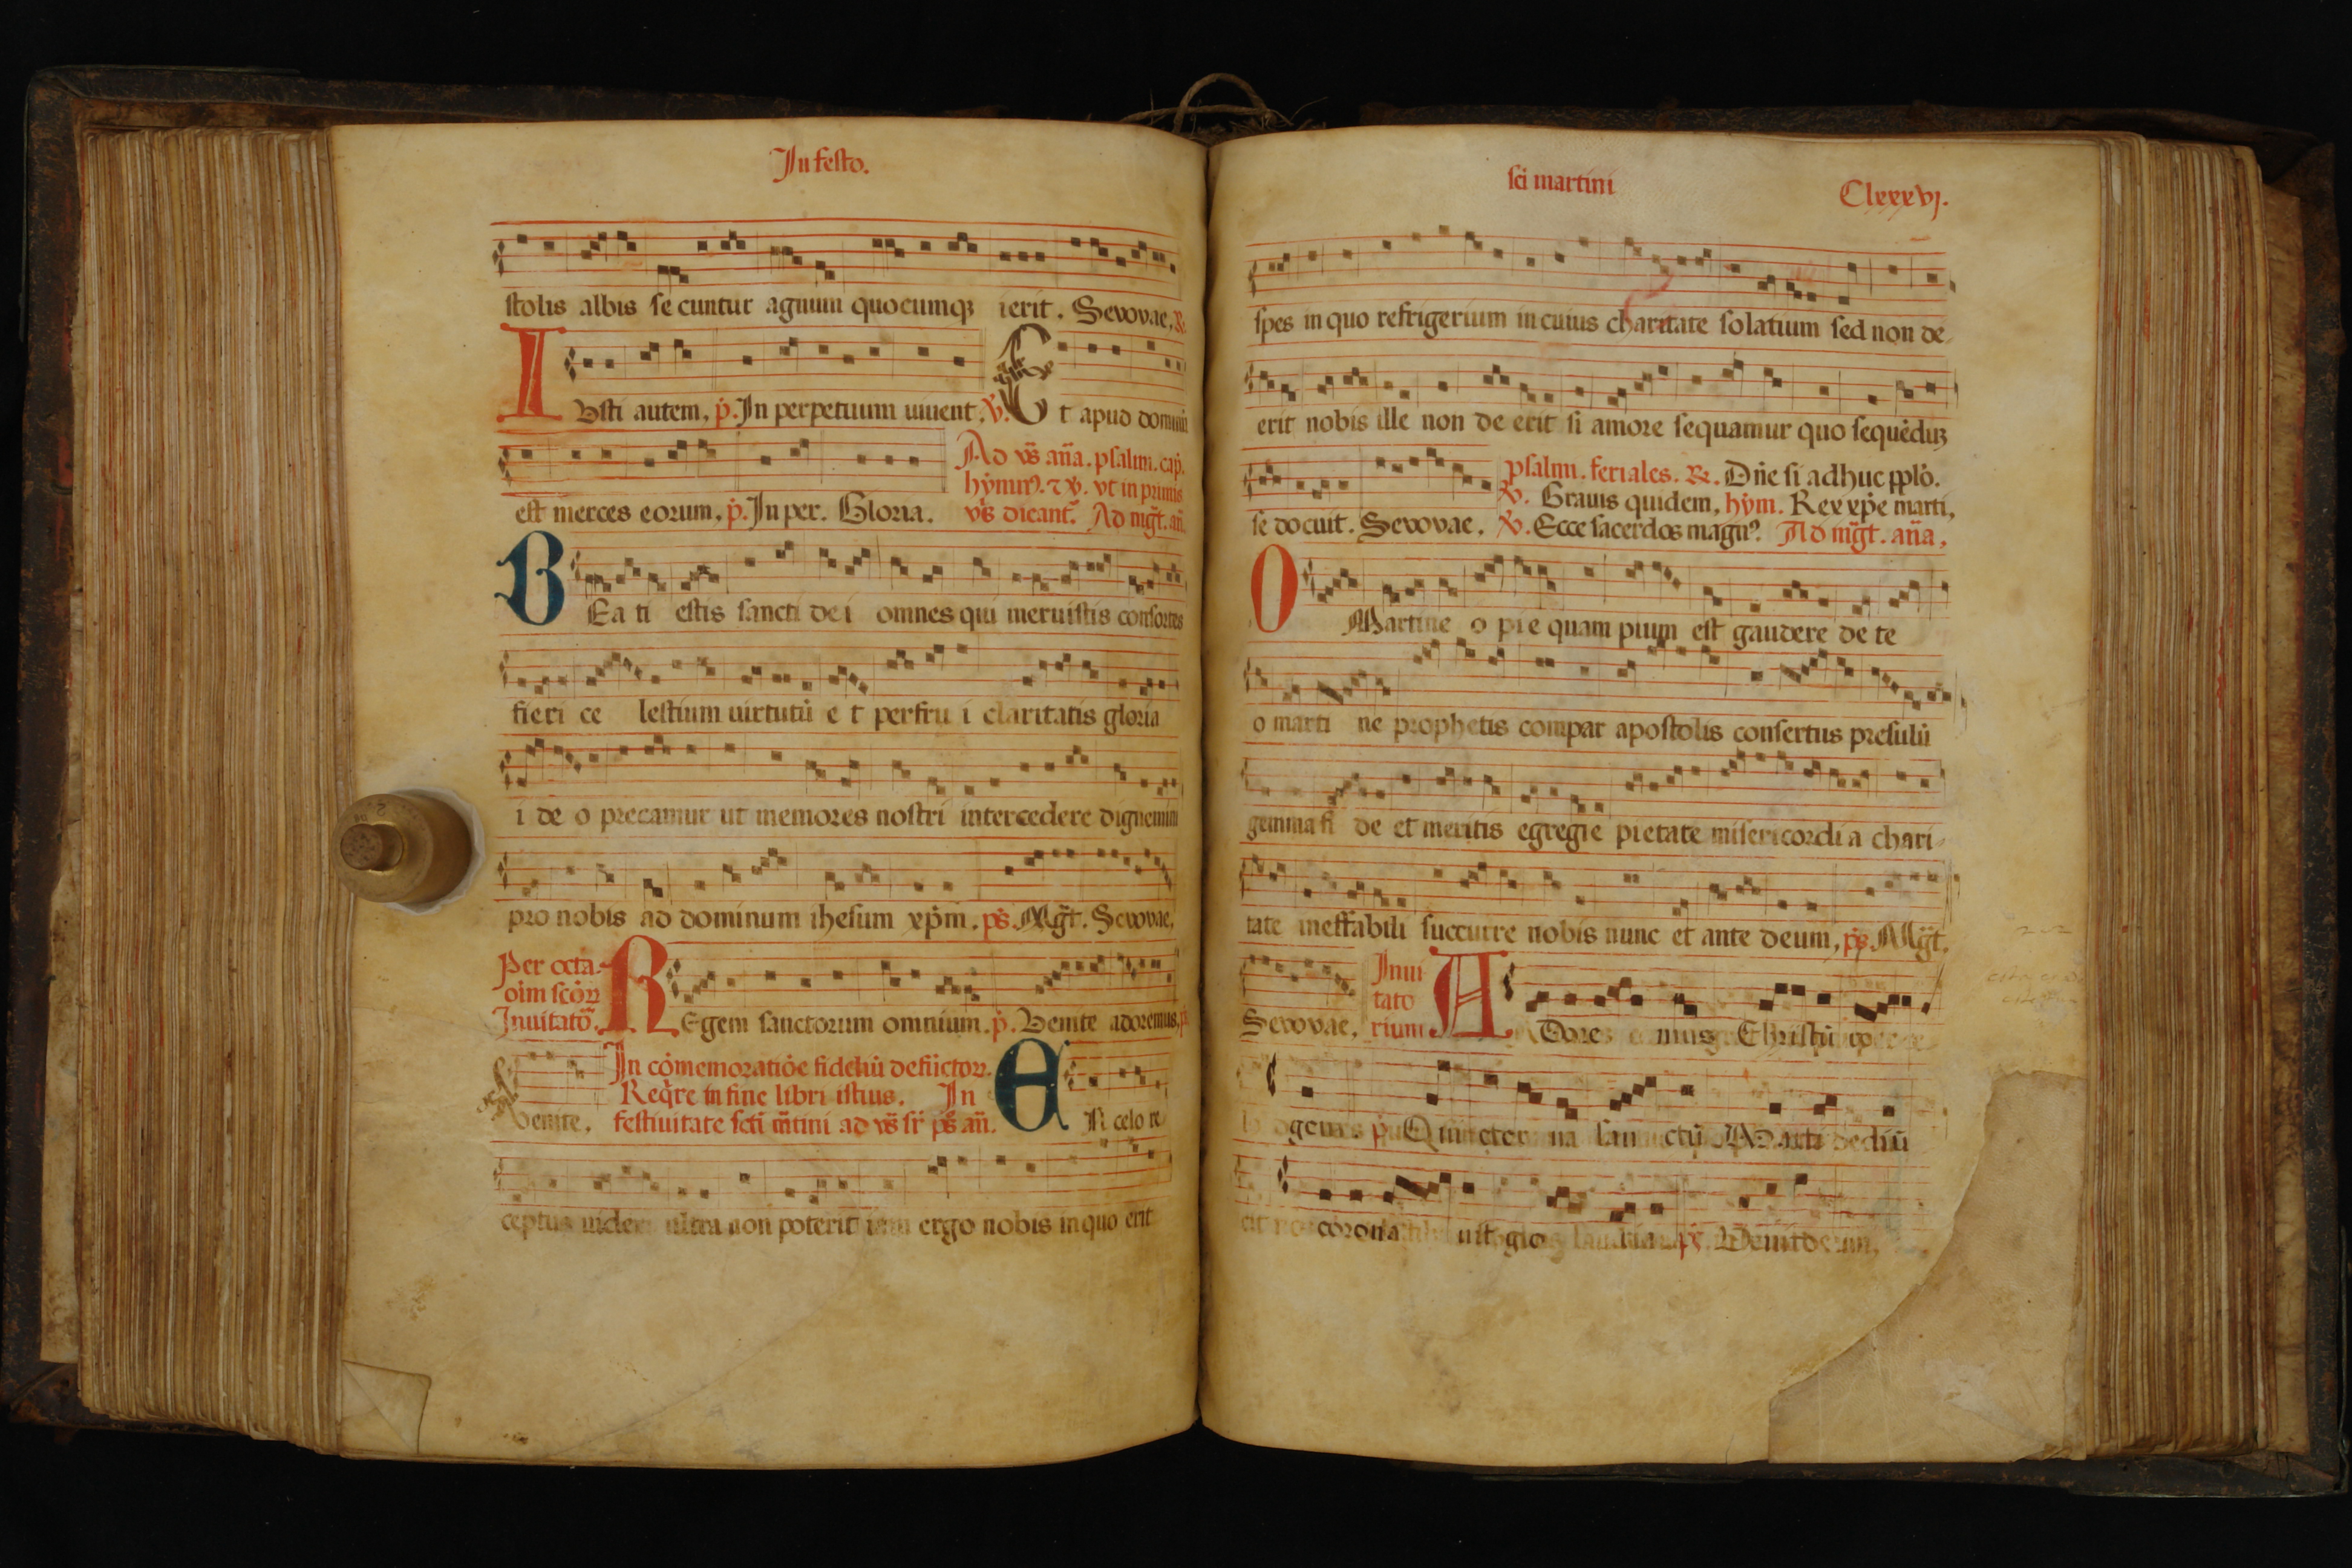 In festo.
stolis albis se cuntur agnum quocumqꝫ ierit. Sevovae. ℞.
I
Vsti autem. ṗ. In perpetuum uiuent. ℣. Et apud dominū
est merces eorum. ṗ. In per. Gloria.
Ad vs̄ an̄a. psalm. cap̄.
hymn9. ⁊ ℣. vt in primis
vs̄ dicant̄. Ad mḡt. an̄.
B
Ea ti estis sancti dei omnes qui meruistis consortes
fieri ce lestium uirtutū e t perfru i claritatis gloria
i de o precamur ut memores nostri intercedere dignemini
pro nobis ad dominum ihesum xp̄m. ps̄. Mḡt. Sevovae.
Per octa.
oīm scōꝝ
Inuitatō.
Regem sanctorum omnium. ṗ. Venite adoremus. p̄
venite.
In cōmemoratiōe fideliū defūctoꝝ.
Req̄re in fine libri istius. In
festiuitate scti m̄tini ad vs̄ sr̄ ps̄ an̄.
E
In celo re
ceptus uider ultra non poterit iam ergo nobis in quo erit
sci martini
Clxxxvj.
spes in quo refrigerium in cuius charitate solatium sed non de-
erit nobis ille non de erit si amore sequamur quo sequēduꝫ
se docuit. Sevovae.
psalmi. feriales. ℞. Dn̄e si adhuc pplō.
℣. Grauis quidem, hym. Rex xp̄e marti.
℣. Ecce sacerdos magn9. Ad mḡt. an̄a.
O
Martine o pie quam pium est gaudere de te
o marti ne prophetis compar apostolis consertus presulū
gemma fi de et meritis egregie pietate misericordi a chari-
tate ineffabili succurre nobis nunc et ante deum, ps̄. Mḡt.
Sevovae.
Inui
tato
rium
A
Dore mus Christū
gem p̄ Qui eter na san ctū Marti
corona uit glo ps̄. Venite